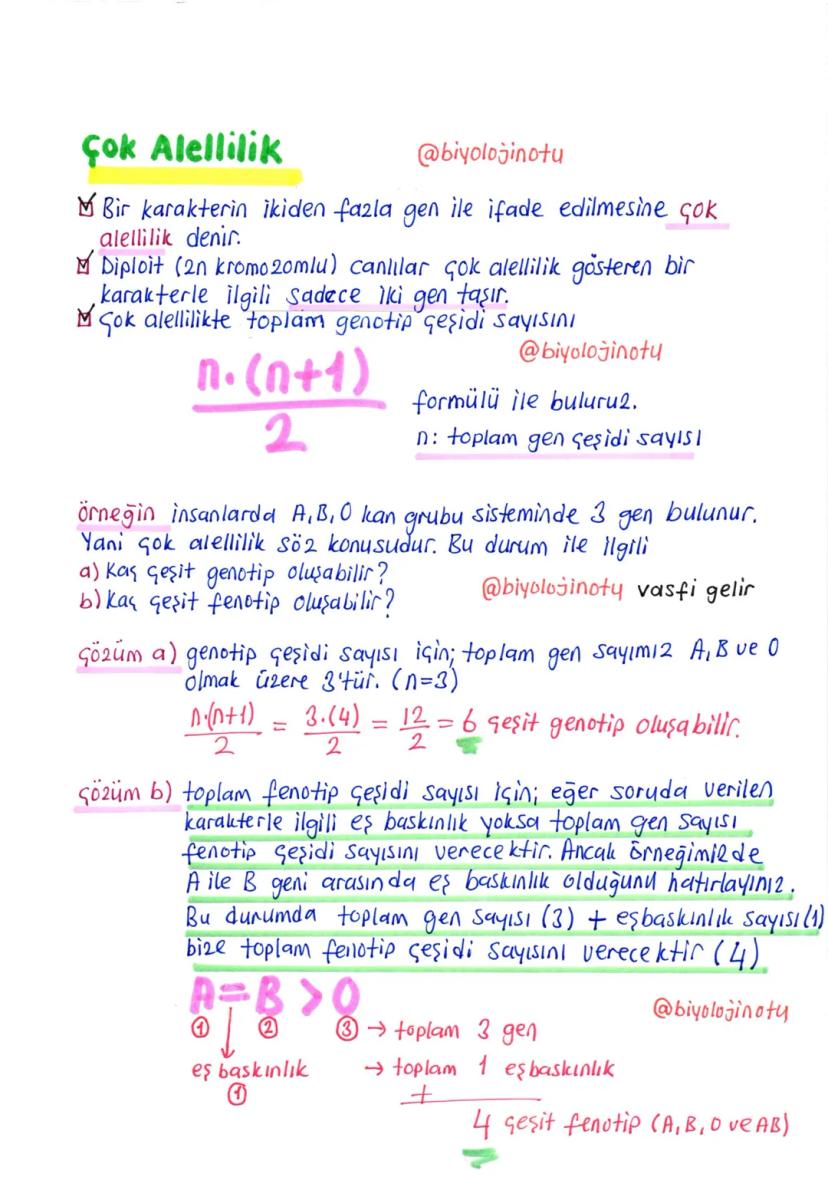 Çok Alellilik
@biyolojinotu
Bir karakterin ikiden fazla gen ile ifade edilmesine çok
alellilik denir.
Diploit (2n kromozomlu) canlılar çok alellilik gösteren bir
karakterle ilgili sadece iki gen taşır.
Çok alellilikte toplam genotip çeşidi sayısını
@biyolojinotu
n.(n+1)
2
formülü ile buluruz.
n: toplam gen çeşidi sayısı
örneğin insanlarda A,B,O kan grubu sisteminde 3 gen bulunur.
Yani çok alellilik söz konusudur. Bu durum ile ilgili
a) Kaç çeşit genotip oluşabilir?
b) Kaç çeşit fenotip oluşabilir?
@biyolojinotu vasfi gelir
çözüm a) genotip çeşidi sayısı için; toplam gen sayımız A,B ve O
olmak üzere 3'tür. (n=3)
n.(n+1)/2 = 3.(4)/2 = 12/2 = 6 çeşit genotip oluşabilir.
çözüm b) toplam fenotip çeşidi sayısı için; eğer soruda verilen
karakterle ilgili eş baskınlık yoksa toplam gen sayısı
fenotip çeşidi sayısını verecektir. Ancak örneğimizde
A ile B geni arasında eş baskınlık olduğunu hatırlayınız.
Bu durumda toplam gen sayısı (3) + eşbaskınlık sayısı (1)
bize toplam fenotip çeşidi sayısını verecektir (4)
A = B > O
@biyolojinotu
① ② ③ → toplam 3 gen
eş baskınlık → toplam 1 eşbaskınlık
① +
4 çeşit fenotip (A,B,O ve AB)